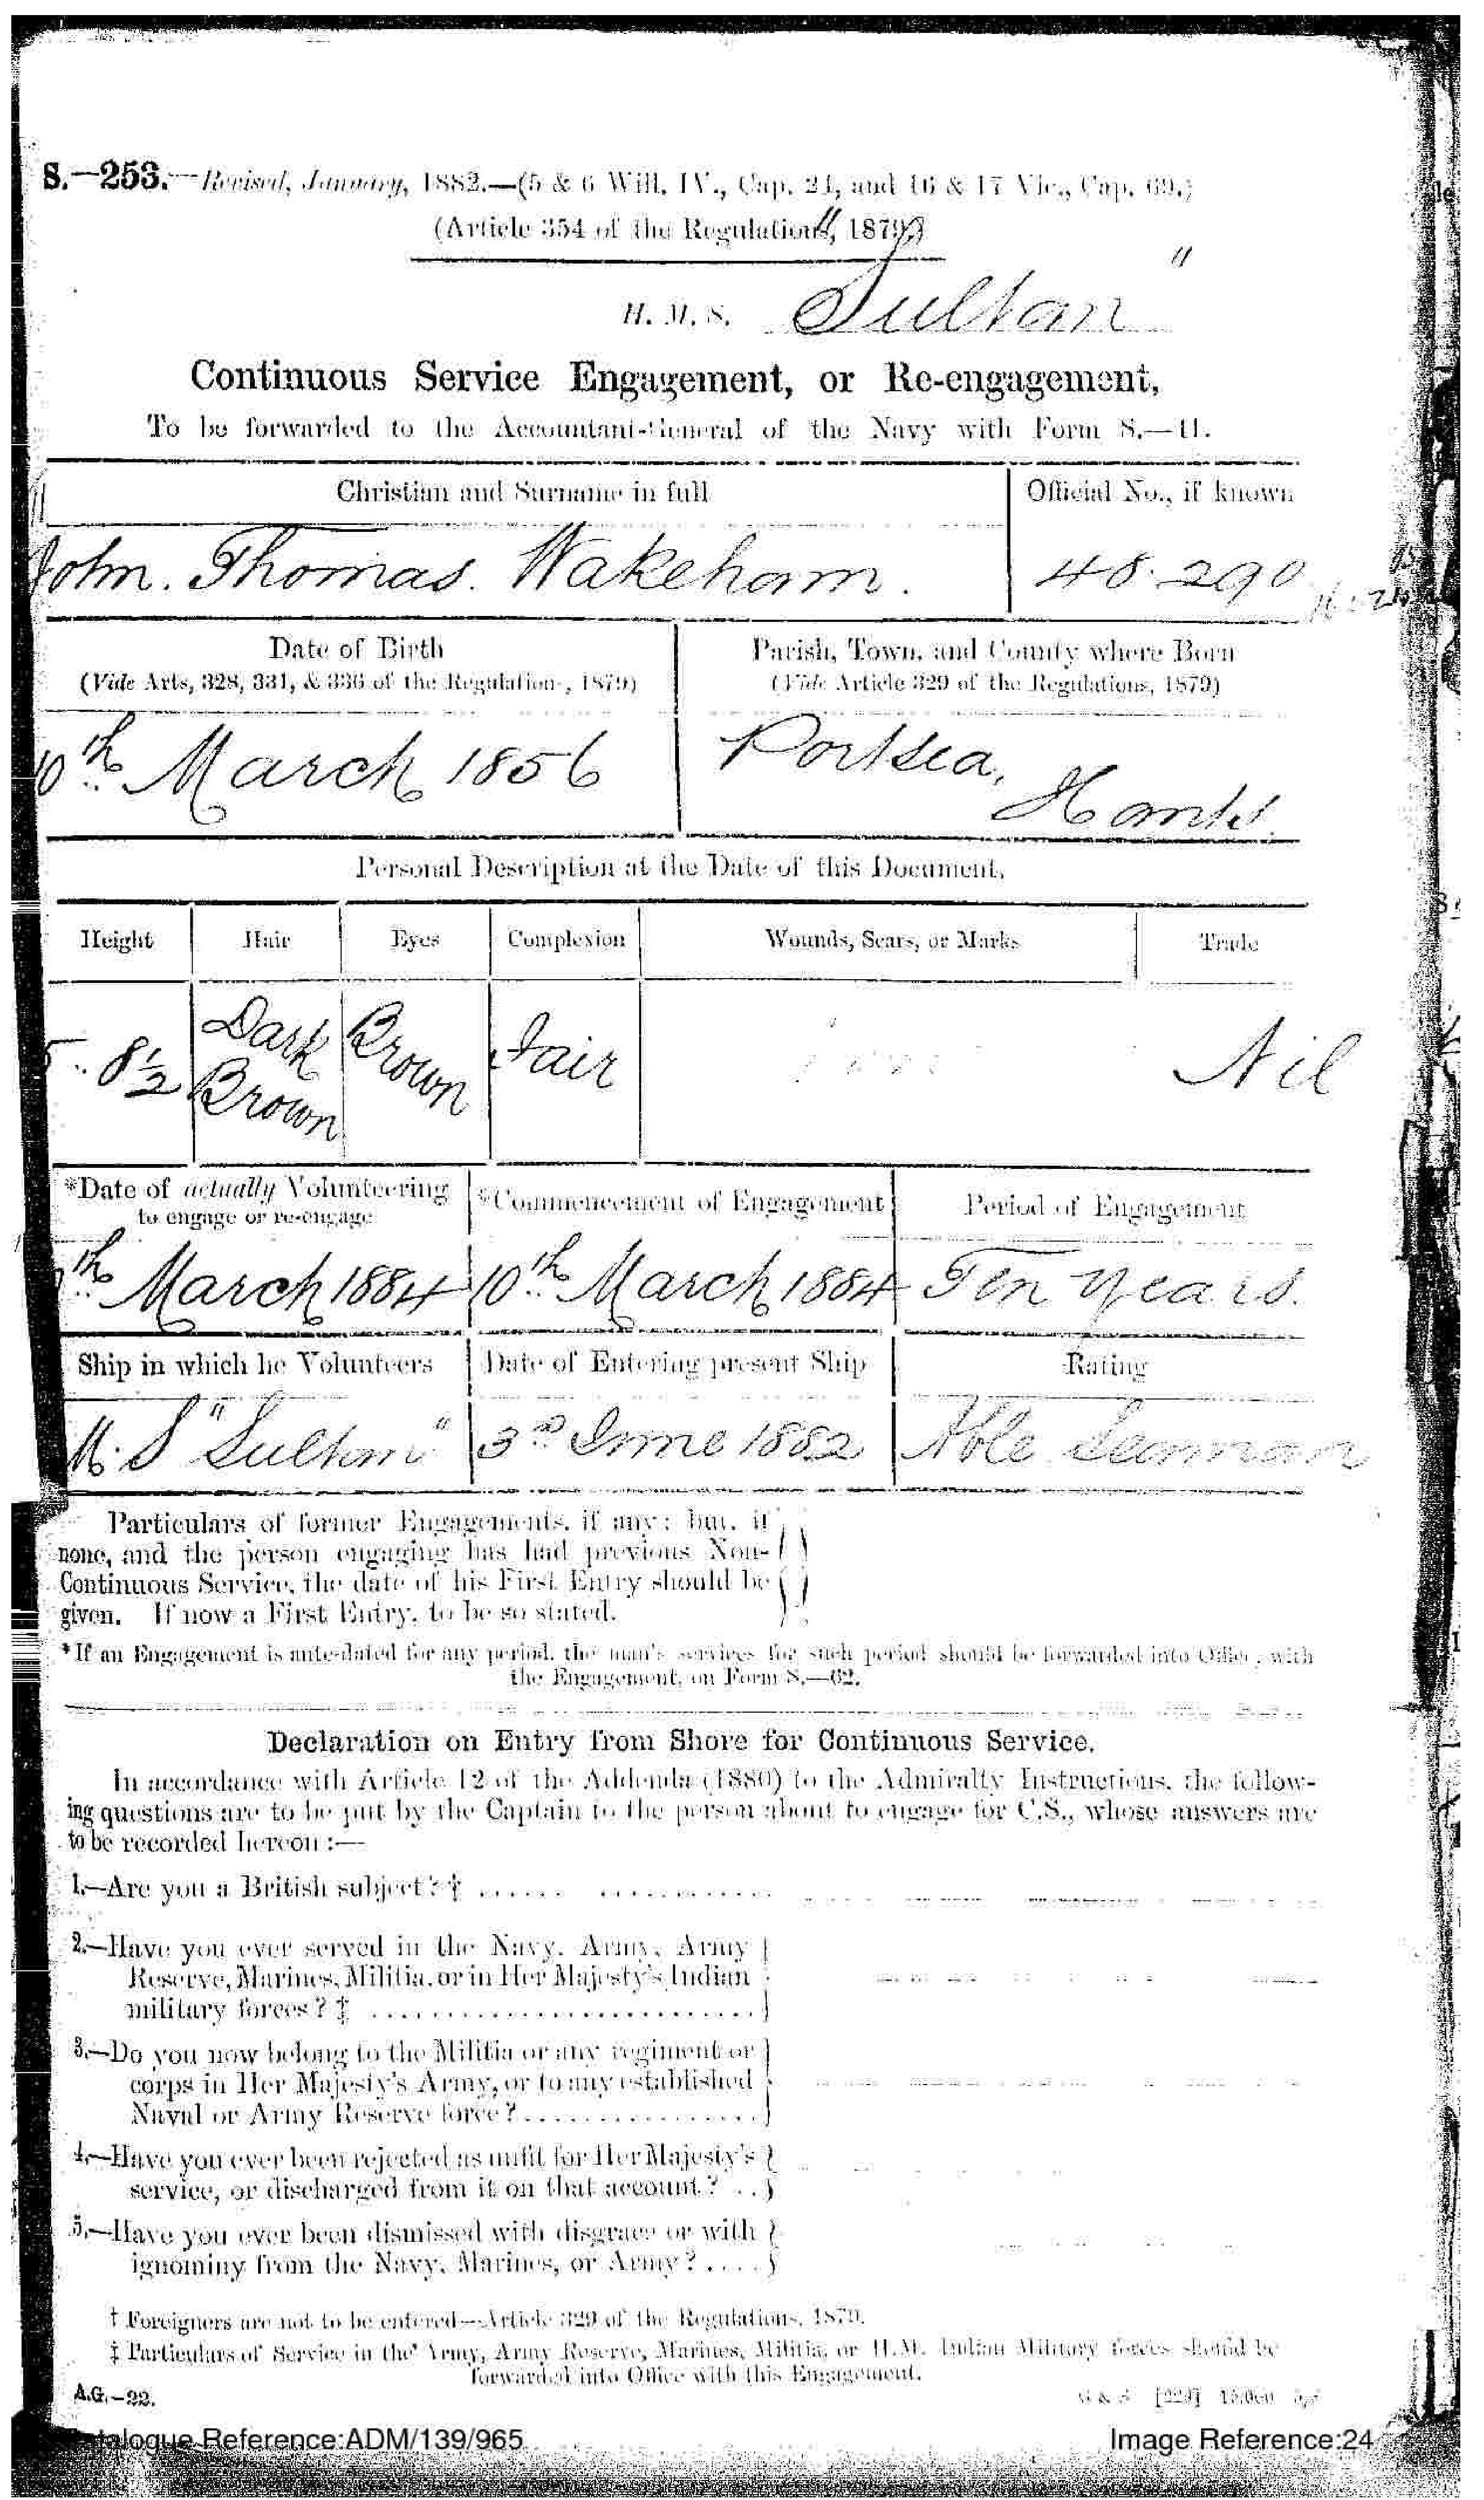 S.—253.—Revised, January, 1882.—(5 & 6 Will. IV., Cap. 24, and 16 & 17 Vic., Cap. 69.)
(Article 354 of the Regulations, 1879.)
H. M. S. "Sultan"
Continuous Service Engagement, or Re-engagement,
To be forwarded to the Accountant-General of the Navy with Form S.—11.
Christian and Surname in full
Official No., if known
John. Thomas. Wakeham.
48.290
Date of Birth
Parish, Town, and County where Born
(Vide Arts, 328, 331, & 336 of the Regulations, 1879)
(Vide Article 329 of the Regulations, 1879)
10th March 1856
Portsea,
Hants.
Personal Description at the Date of this Document.
Height
Hair
Eyes
Complexion
Wounds, Scars, or Marks
Trade
5.. 8½
Dark Brown
Brown
Fair
Nil
*Date of actually Volunteering
to engage or re-engage
*Commencement of Engagement
Period of Engagement
th March 1884
10th March 1884
Ten Years.
Ship in which he Volunteers
Date of Entering present Ship
Rating
M. S "Sultan"
3rd June 1882
Able Seaman
Particulars of former Engagements, if any; but, if
none, and the person engaging has had previous Non-
Continuous Service, the date of his First Entry should be
given. If now a First Entry, to be so stated.
*If an Engagement is ante-dated for any period, the man's services for such period should be forwarded into Office, with
the Engagement, on Form S.—62.
Declaration on Entry from Shore for Continuous Service.
In accordance with Article 12 of the Addenda (1880) to the Admiralty Instructions, the follow-
ing questions are to be put by the Captain to the person about to engage for C.S., whose answers are
to be recorded hereon :—
1.—Are you a British subject? † ...... ............
2.—Have you ever served in the Navy, Army, Army
Reserve, Marines, Militia, or in Her Majesty's Indian
military forces? ‡ ..........................
3.—Do you now belong to the Militia or any regiment or
corps in Her Majesty's Army, or to any established
Naval or Army Reserve force?................
4.—Have you ever been rejected as unfit for Her Majesty's
service, or discharged from it on that account? ..
5.—Have you ever been dismissed with disgrace or with
ignominy from the Navy, Marines, or Army? ....
† Foreigners are not to be entered—Article 329 of the Regulations, 1879.
‡ Particulars of Service in the Army, Army Reserve, Marines, Militia, or H.M. Indian Military forces should be
forwarded into Office with this Engagement.
A.G.—22.
Catalogue Reference:ADM/139/965
Image Reference:24